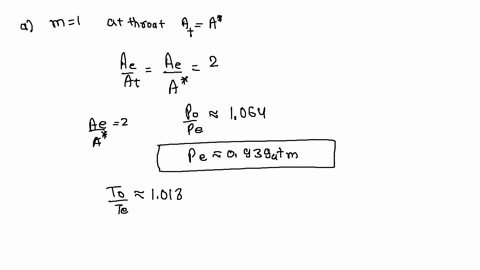 a) m=1 at throat A_t = A*
Ae/At = Ae/A* = 2
Ae/A* = 2 Po/Pe ≈ 1.064
Pe ≈ 0.939 atm
To/Te ≈ 1.018